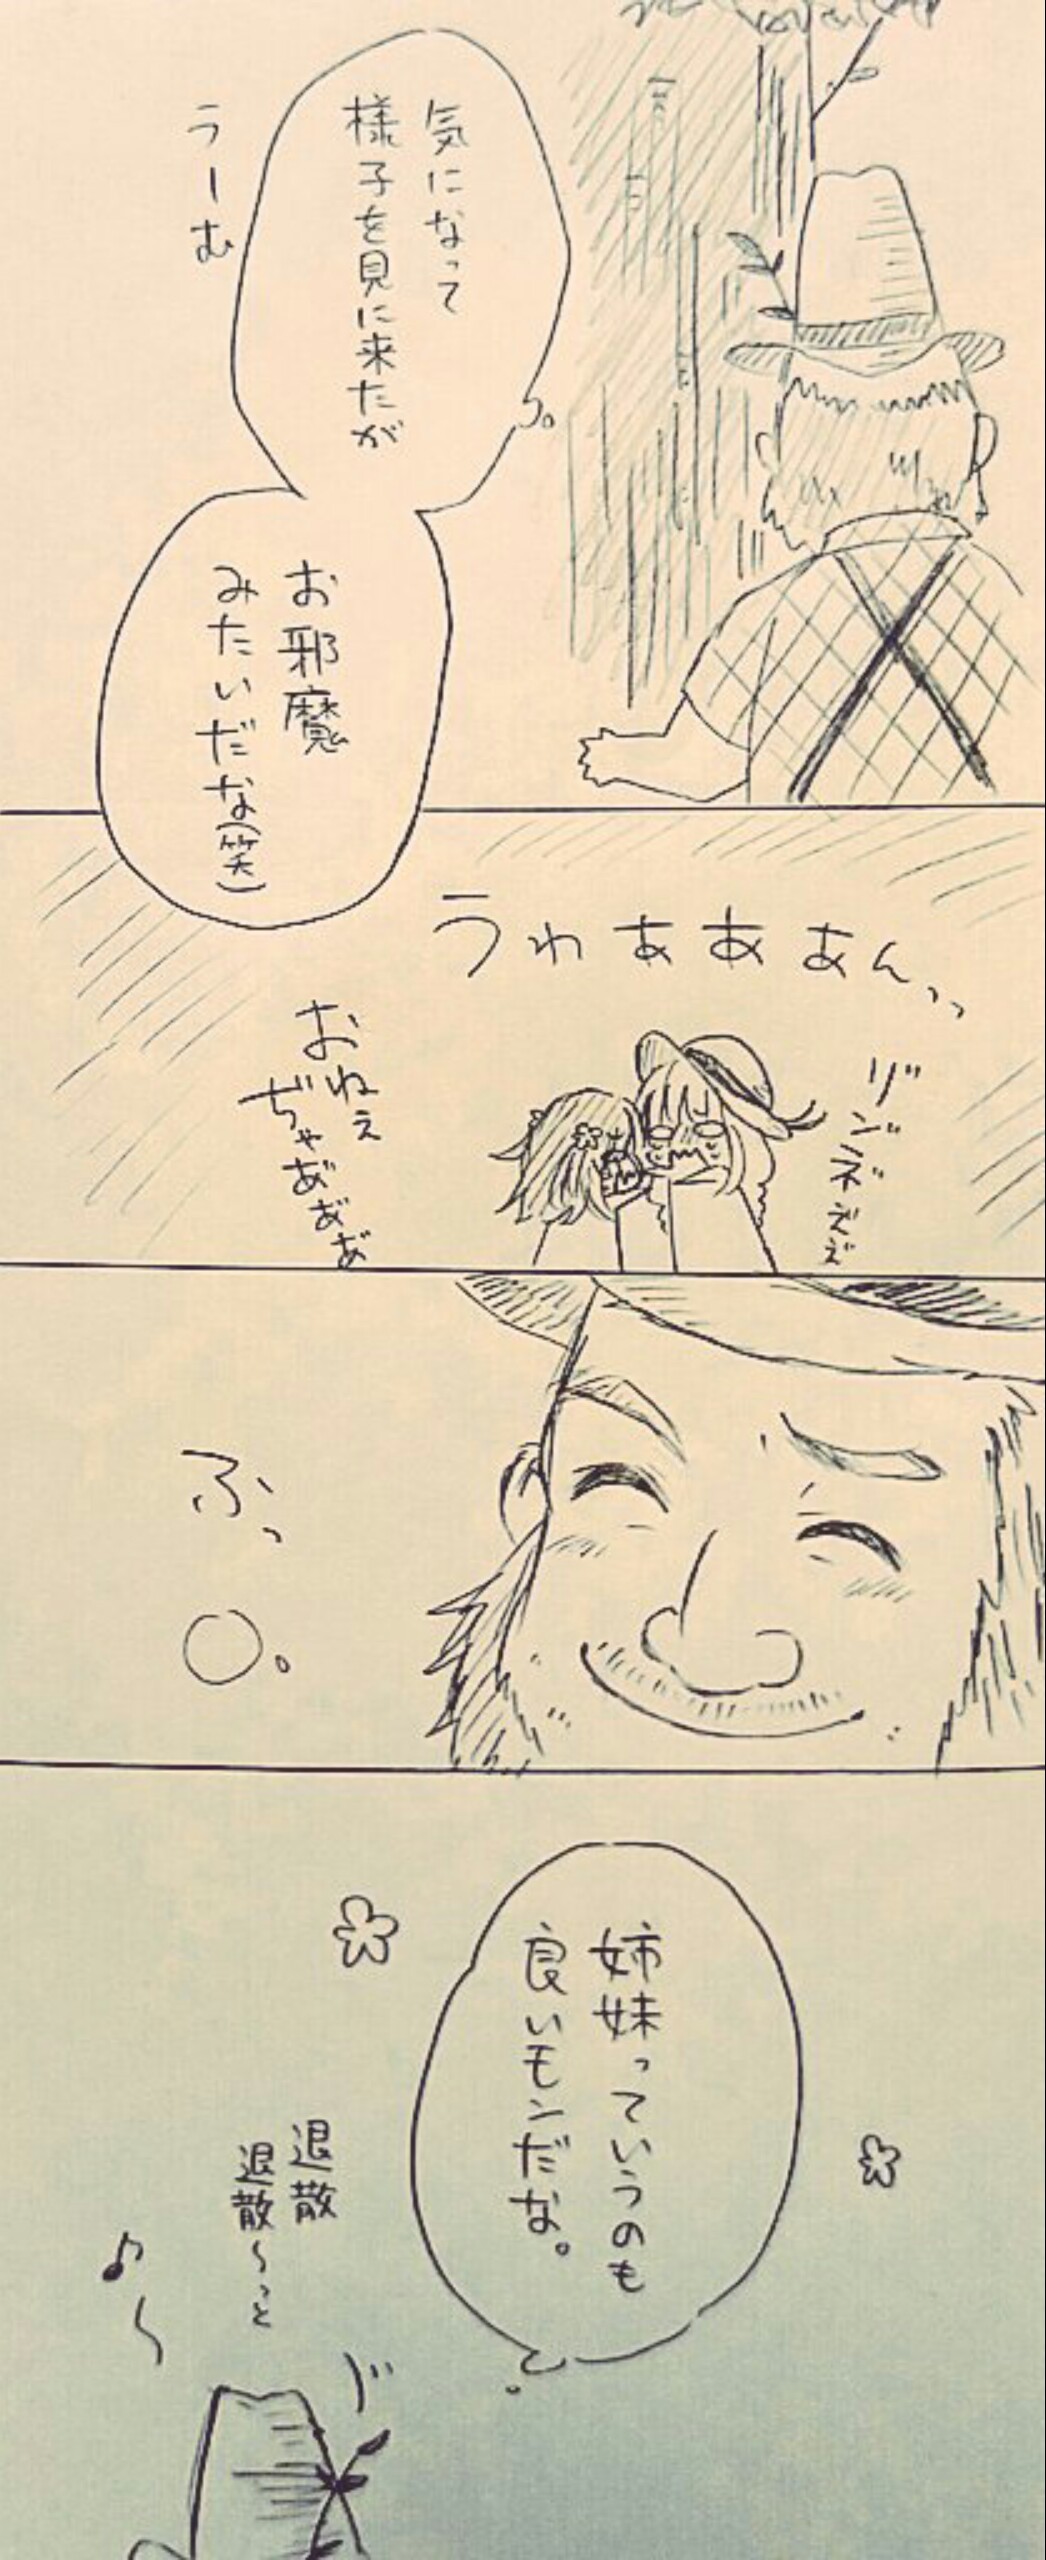 気になって
様子を見に来たが
うーむ
お邪魔
みたいだな(笑)
うわぁああん、、
リ゛ン゛ネ゛ェ゛ェ゛
おねぇ
ぢゃあ゛あ゛あ゛
ふっ
○。
姉妹っていうのも
良いモンだな。
退散
退散〜っと
♪〜